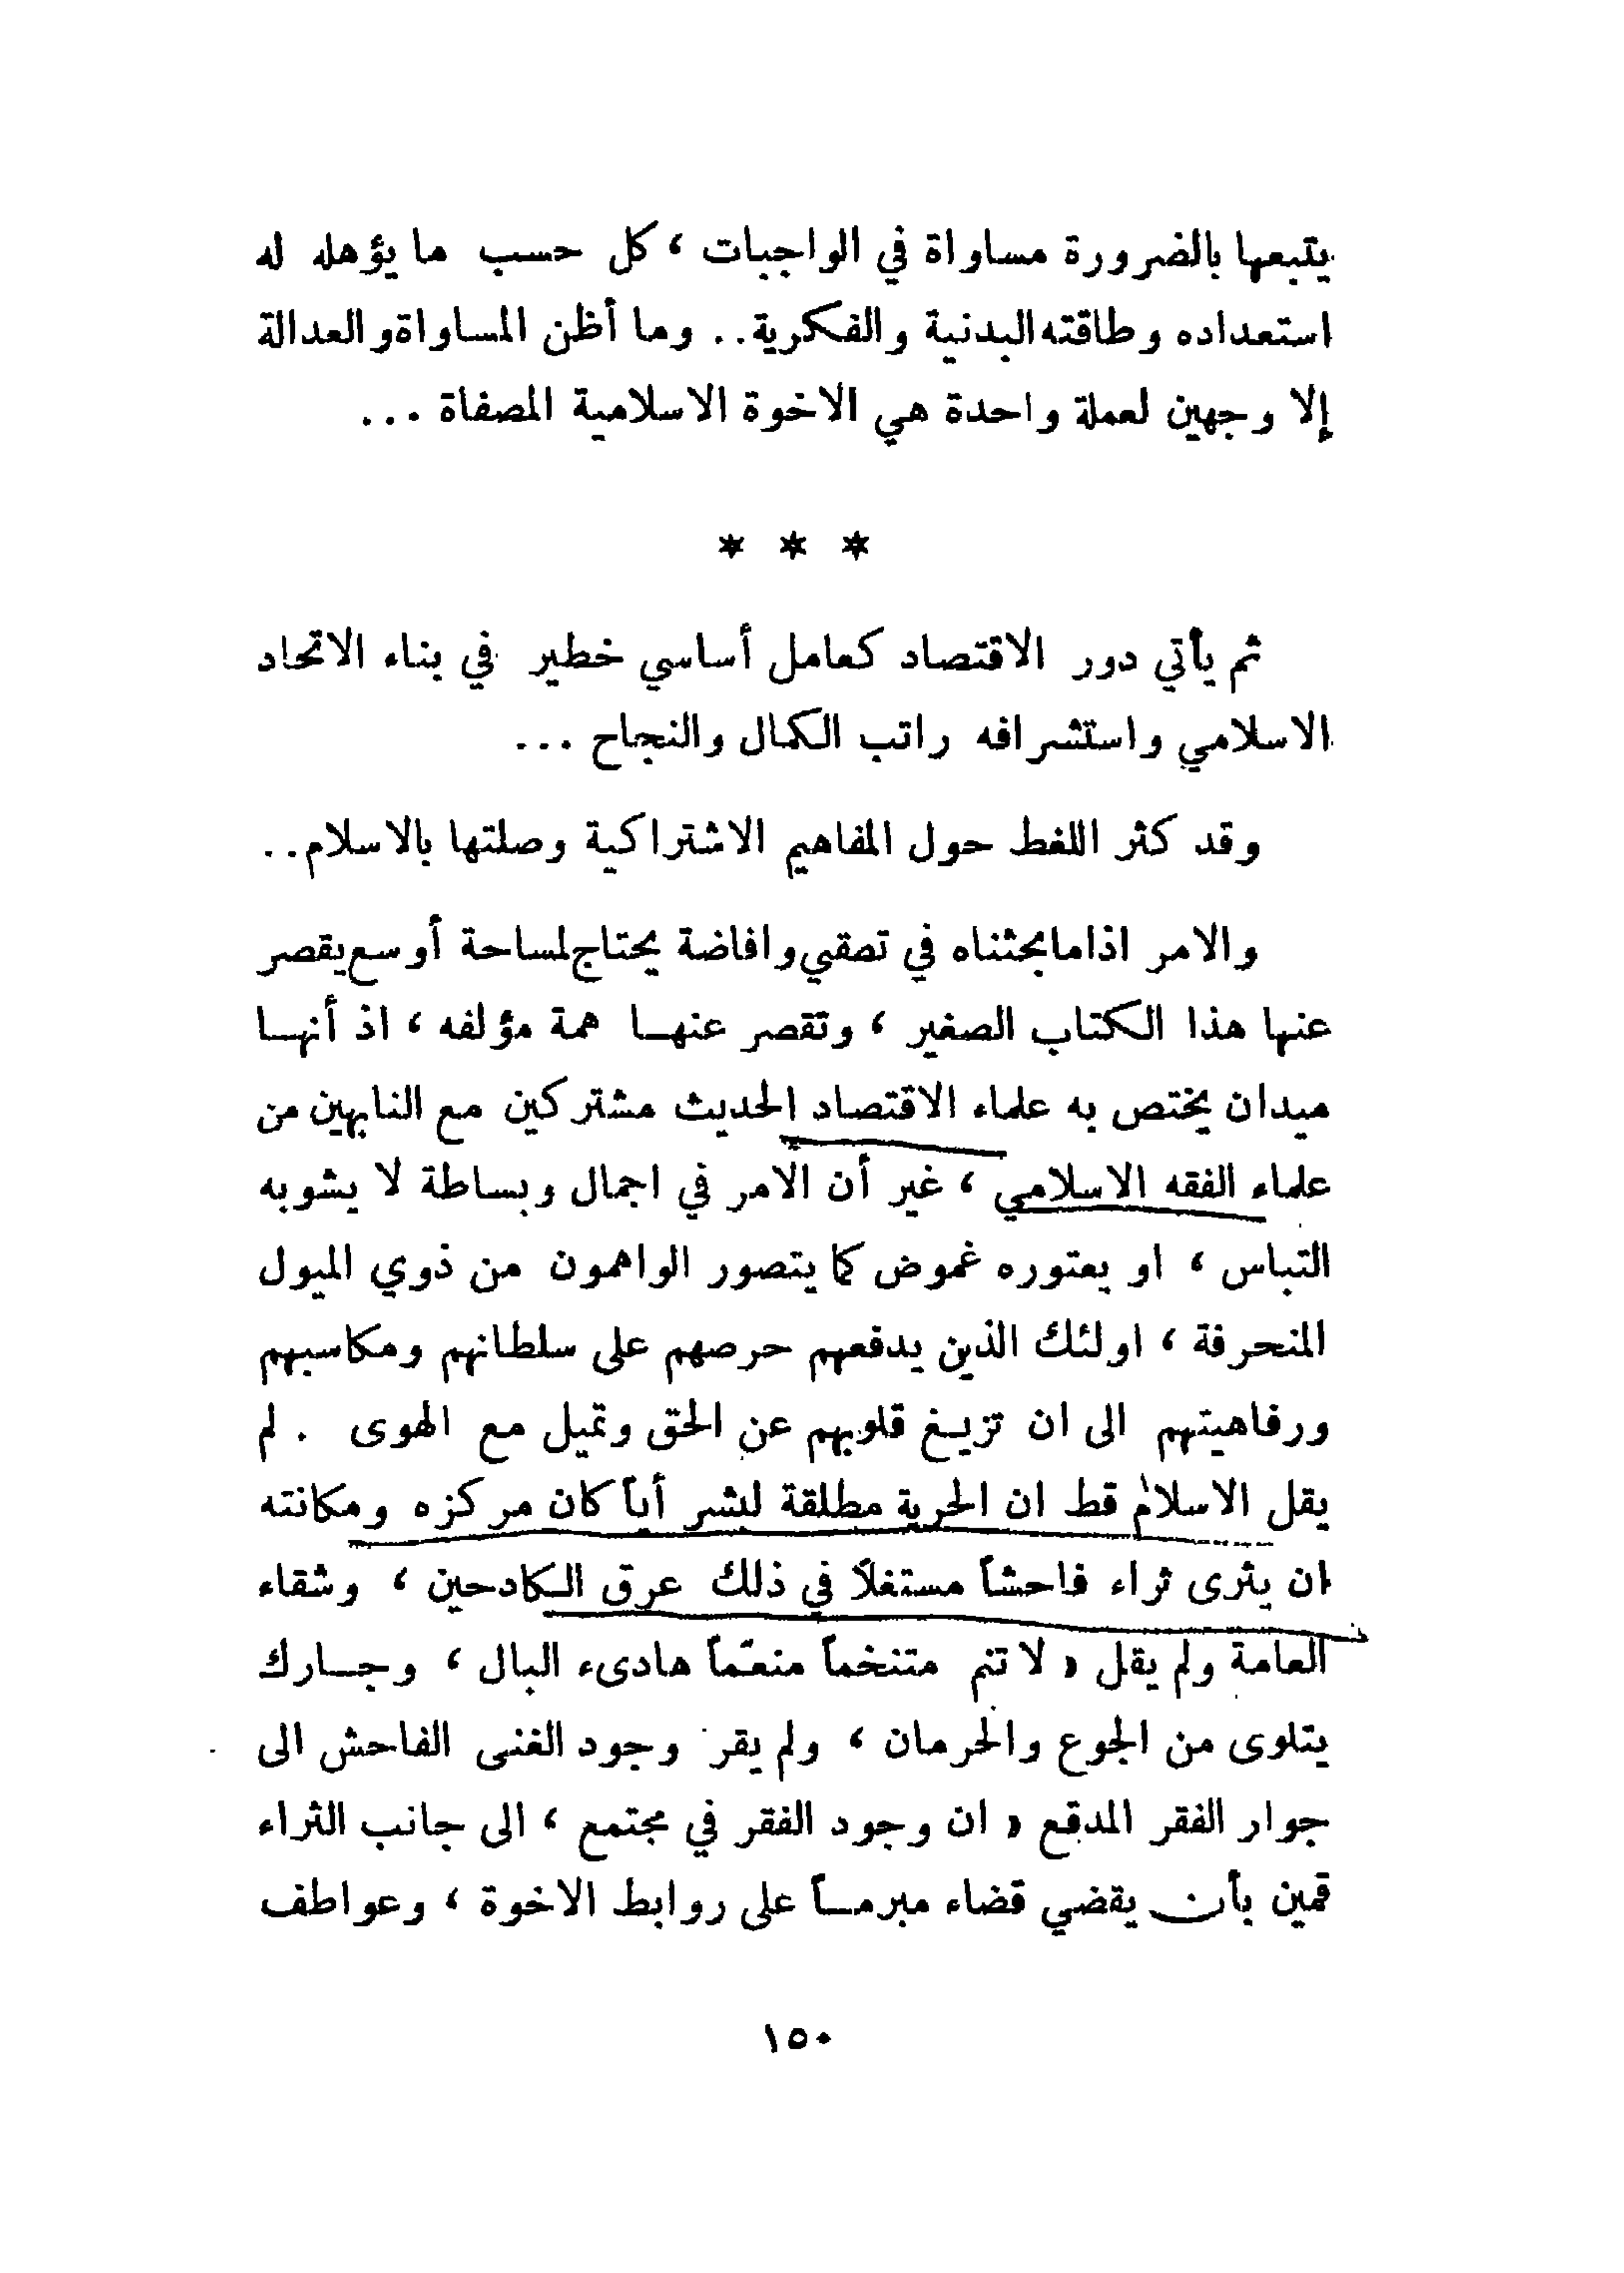 يتبعها بالضرورة مساواة في الواجبات ، كل حسب ما يؤهله له
استعداده وطاقته البدنية والفكرية .. وما أظن المساواة والعدالة
إلا وجهين لعملة واحدة هي الاخوة الاسلامية المصفاة ...
* * *
ثم يأتي دور الاقتصاد كعامل أساسي خطير في بناء الاتحاد
الاسلامي واستشرافه راتب الكمال والنجاح ...
وقد كثر اللغط حول المفاهيم الاشتراكية وصلتها بالاسلام ..
والامر اذا ما بحثناه في تصقي وافاضة يحتاج لمساحة أوسع يقصر
عنها هذا الكتاب الصغير ، وتقصر عنها همة مؤلفه ، اذ أنها
ميدان يختص به علماء الاقتصاد الحديث مشتركين مع النابهين من
علماء الفقه الاسلامي ، غير أن الامر في اجمال وبساطة لا يشوبه
التباس ، او يعتوره غموض كما يتصور الواهمون من ذوي الميول
المنحرفة ، اولئك الذين يدفعهم حرصهم على سلطانهم ومكاسبهم
ورفاهيتهم الى ان تزيغ قلوبهم عن الحق وتميل مع الهوى . لم
يقل الاسلام قط ان الحرية مطلقة لبشر أياً كان مركزه ومكانته
ان يثرى ثراء فاحشاً مستغلاً في ذلك عرق الكادحين ، وشقاء
العامة ولم يقل « لا تنم متنخماً منعّماً هادىء البال ، وجارك
يتلوى من الجوع والحرمان ، ولم يقر وجود الغنى الفاحش الى
جوار الفقر المدقع « ان وجود الفقر في مجتمع ، الى جانب الثراء
قمين بأن يقضي قضاء مبرماً على روابط الاخوة ، وعواطف
١٥٠